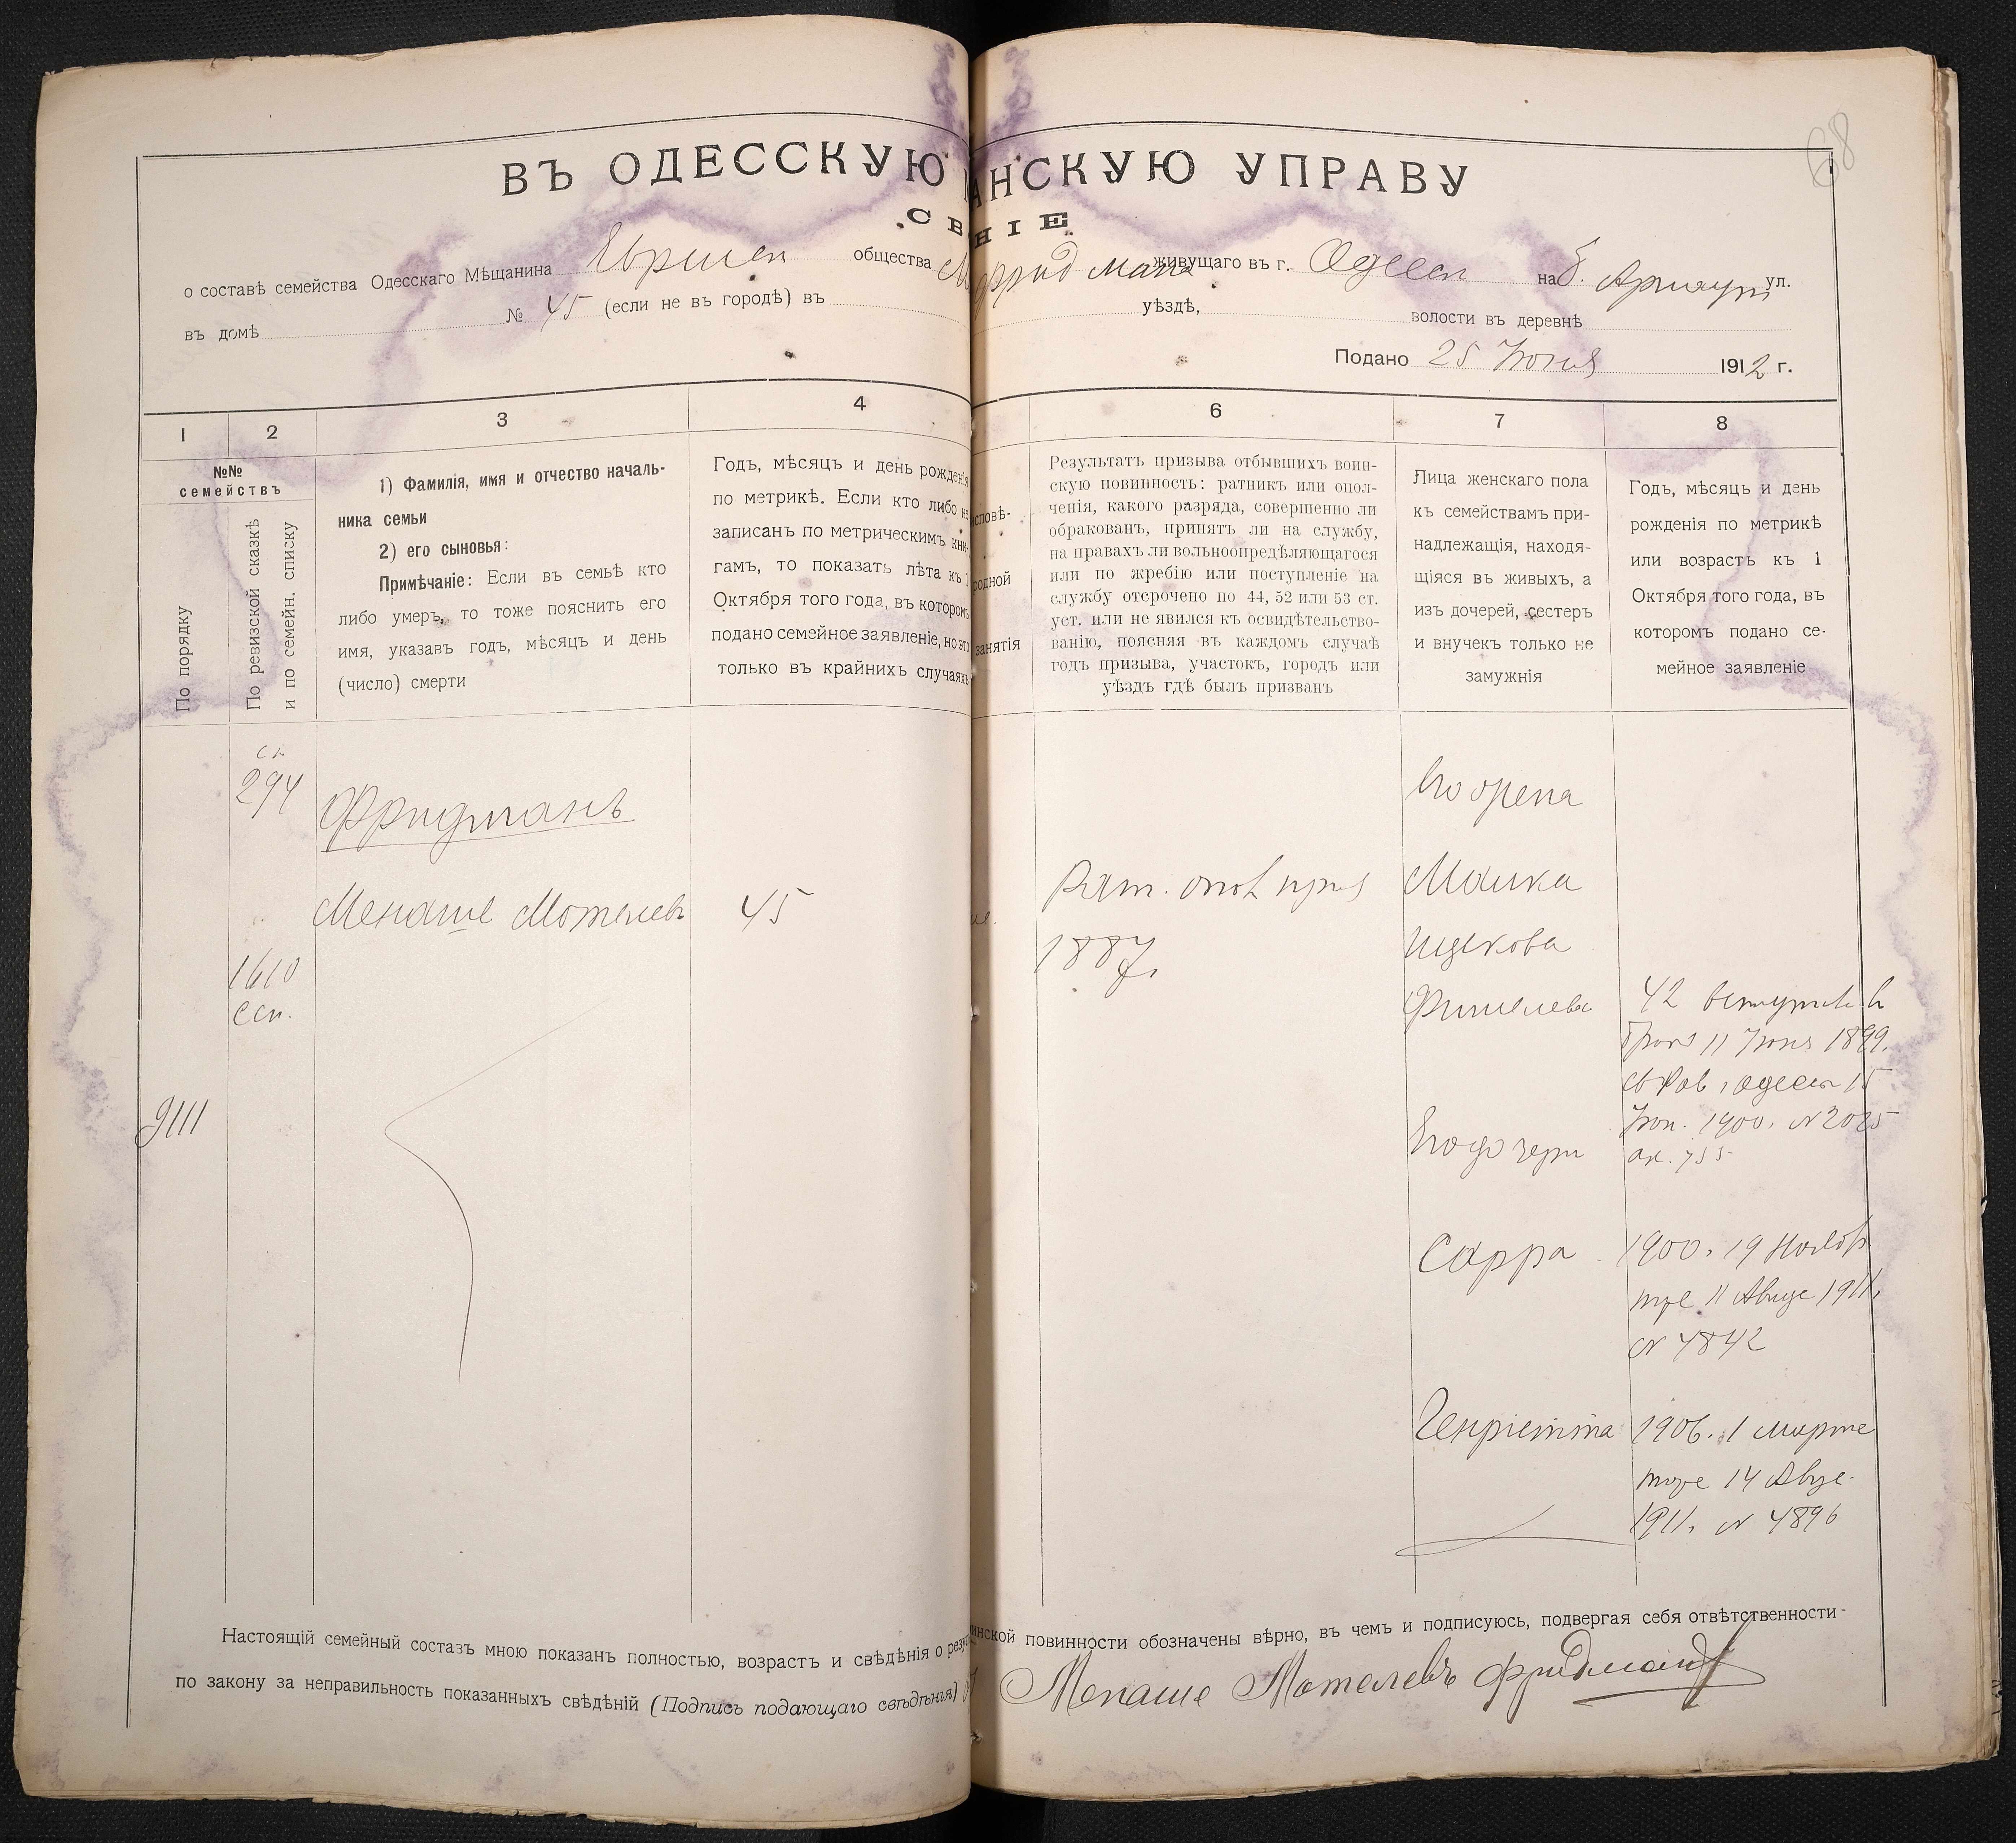 68
ВЪ ОДЕССКУЮ АНСКУЮ УПРАВУ
СВ НІЕ
о составѣ семейства Одесскаго Мѣщанина Еврейск общества М Фридмана живущаго въ г. Одессѣ на Б. Арнаут ул.
въ домѣ № 45 (если не въ городѣ) въ уѣздѣ, волости въ деревнѣ
Подано 25 Іюня 1912 г.
1 2 3 4 6 7 8
№№
семействъ
По порядку
По ревизской сказкѣ
и по семейн. списку
1) Фамилія, имя и отчество началь-
ника семьи
2) его сыновья:
Примѣчаніе: Если въ семьѣ кто
либо умеръ, то тоже пояснить его
имя, указавъ годъ, мѣсяцъ и день
(число) смерти
Годъ, мѣсяцъ и день рожденія
по метрикѣ. Если кто либо не
записанъ по метрическимъ кни-
гамъ, то показать лѣта къ 1
Октября того года, въ которомъ
подано семейное заявленіе, но это
только въ крайнихъ случаяхъ
сповѣ-
родной
занятія
Результатъ призыва отбывшихъ воин-
скую повинность: ратникъ или опол-
ченія, какого разряда, совершенно ли
обракованъ, принятъ ли на службу,
на правахъ ли вольноопредѣляющагося
или по жребію или поступленіе на
службу отсрочено по 44, 52 или 53 ст.
уст. или не явился къ освидѣтельство-
ванію, поясняя въ каждомъ случаѣ
годъ призыва, участокъ, городъ или
уѣздъ гдѣ былъ призванъ
Лица женскаго пола
къ семействамъ при-
надлежащія, находя-
щіяся въ живыхъ, а
изъ дочерей, сестеръ
и внучекъ только не
замужнія
Годъ, мѣсяцъ и день
рожденія по метрикѣ
или возрастъ къ 1
Октября того года, въ
которомъ подано се-
мейное заявленіе
ск
294
Фридманъ
Менаше Мотелевъ
45
1610
ссп.
9111
Рат. опол
1887
Его жена
Малка
Ицкова
Фишелева
42 вступил в
бракъ 11 Іюня 1899.
Одесск 15
Іюн. 1900. № 2025
ак. 755
Его дочери
Сарра
1900. 19 Ноябр
11 Авгус 1911.
№ 4842
Генріетта
1906. 1 Марта
14 Авгус.
1911. № 4896
Настоящій семейный составъ мною показанъ полностью, возрастъ и свѣдѣнія о резу инской повинности обозначены вѣрно, въ чемъ и подписуюсь, подвергая себя отвѣтственности
по закону за неправильность показанныхъ свѣдѣній (Подпись подающаго свѣдѣнія) Менаше Мотелевъ Фридманъ